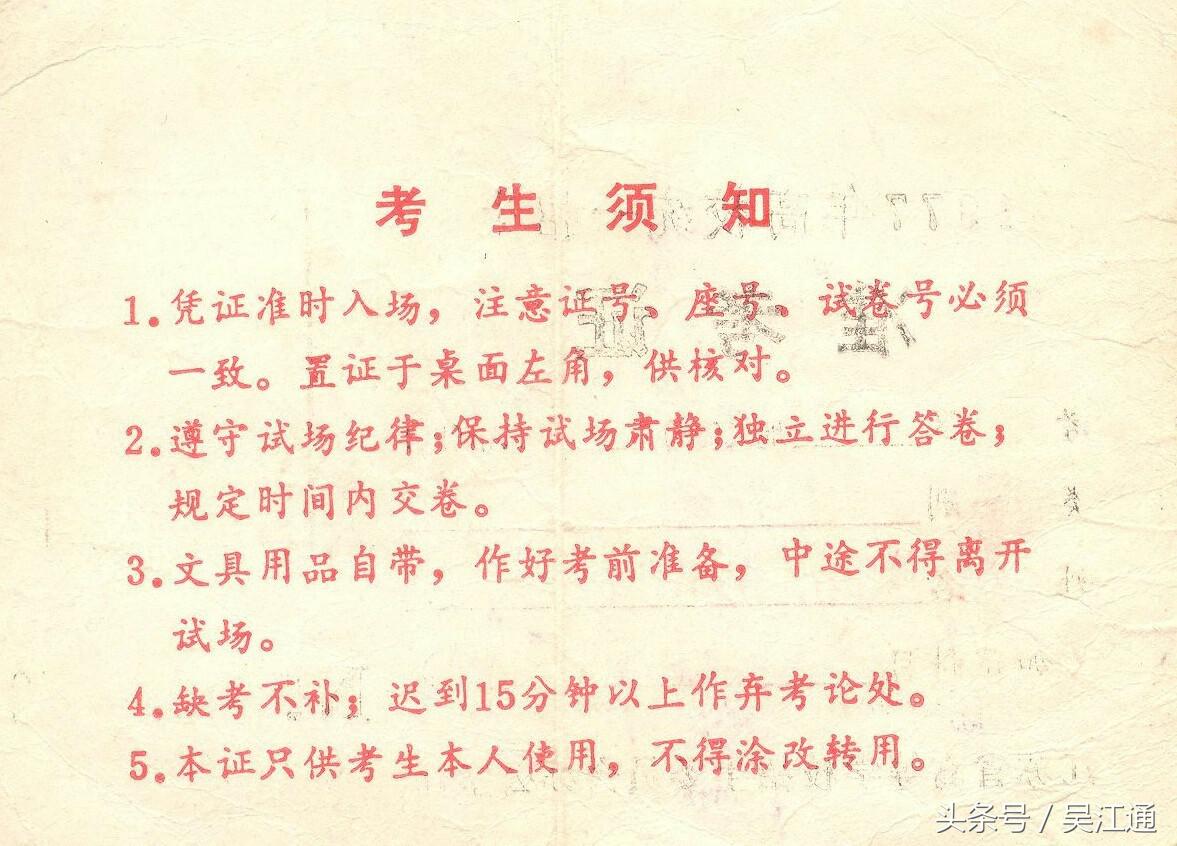 考生须知
1.凭证准时入场，注意证号、座号、试卷号必须
一致。置证于桌面左角，供核对。
2.遵守试场纪律；保持试场肃静；独立进行答卷；
规定时间内交卷。
3.文具用品自带，作好考前准备，中途不得离开
试场。
4.缺考不补；迟到15分钟以上作弃考论处。
5.本证只供考生本人使用，不得涂改转用。
头条号 / 吴江通